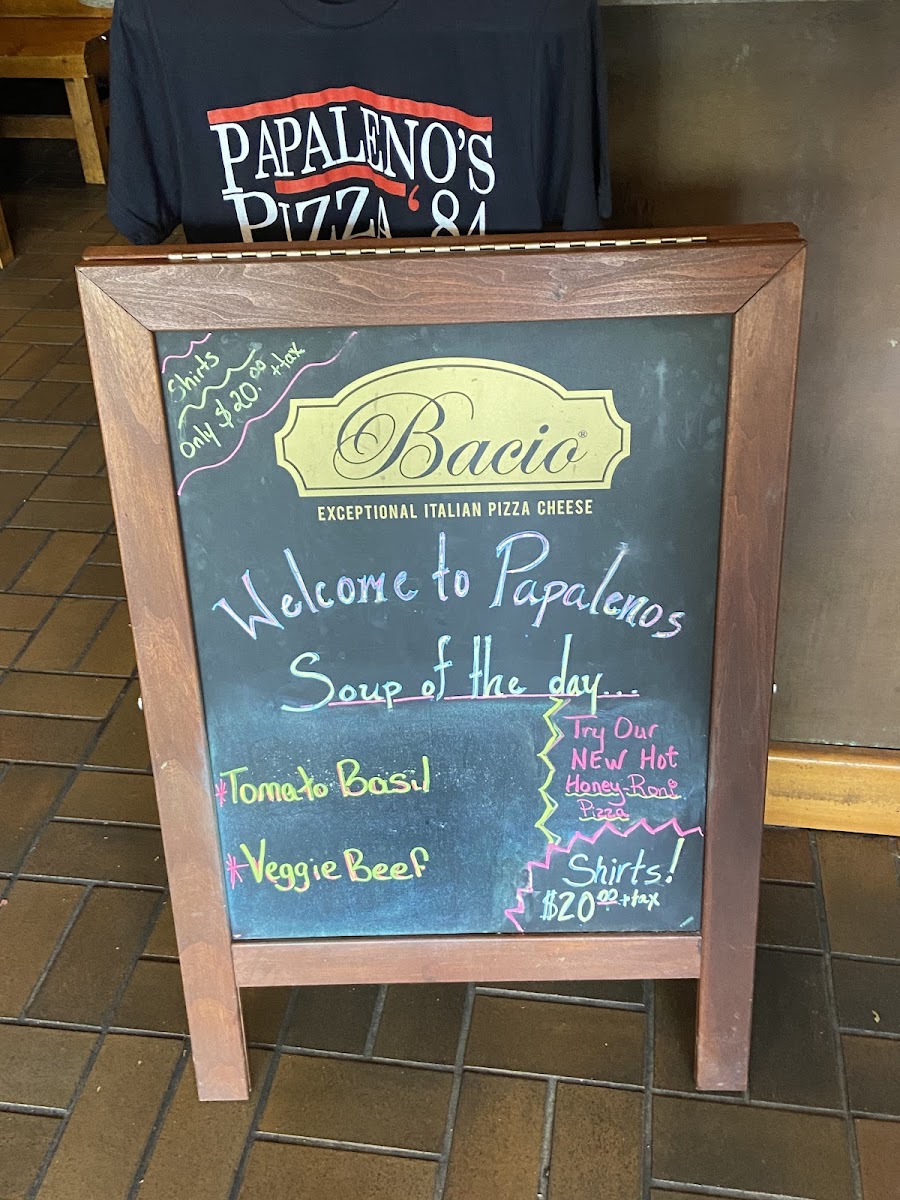 PAPALENO'S
PIZZA '84
Shirts
only $20.00 +tax
Bacio®
EXCEPTIONAL ITALIAN PIZZA CHEESE
Welcome to Papalenos
Soup of the day...
*Tomato Basil
*Veggie Beef
Try Our
NEW Hot
Honey-Roni
Pizza
Shirts!
$20.00 +tax